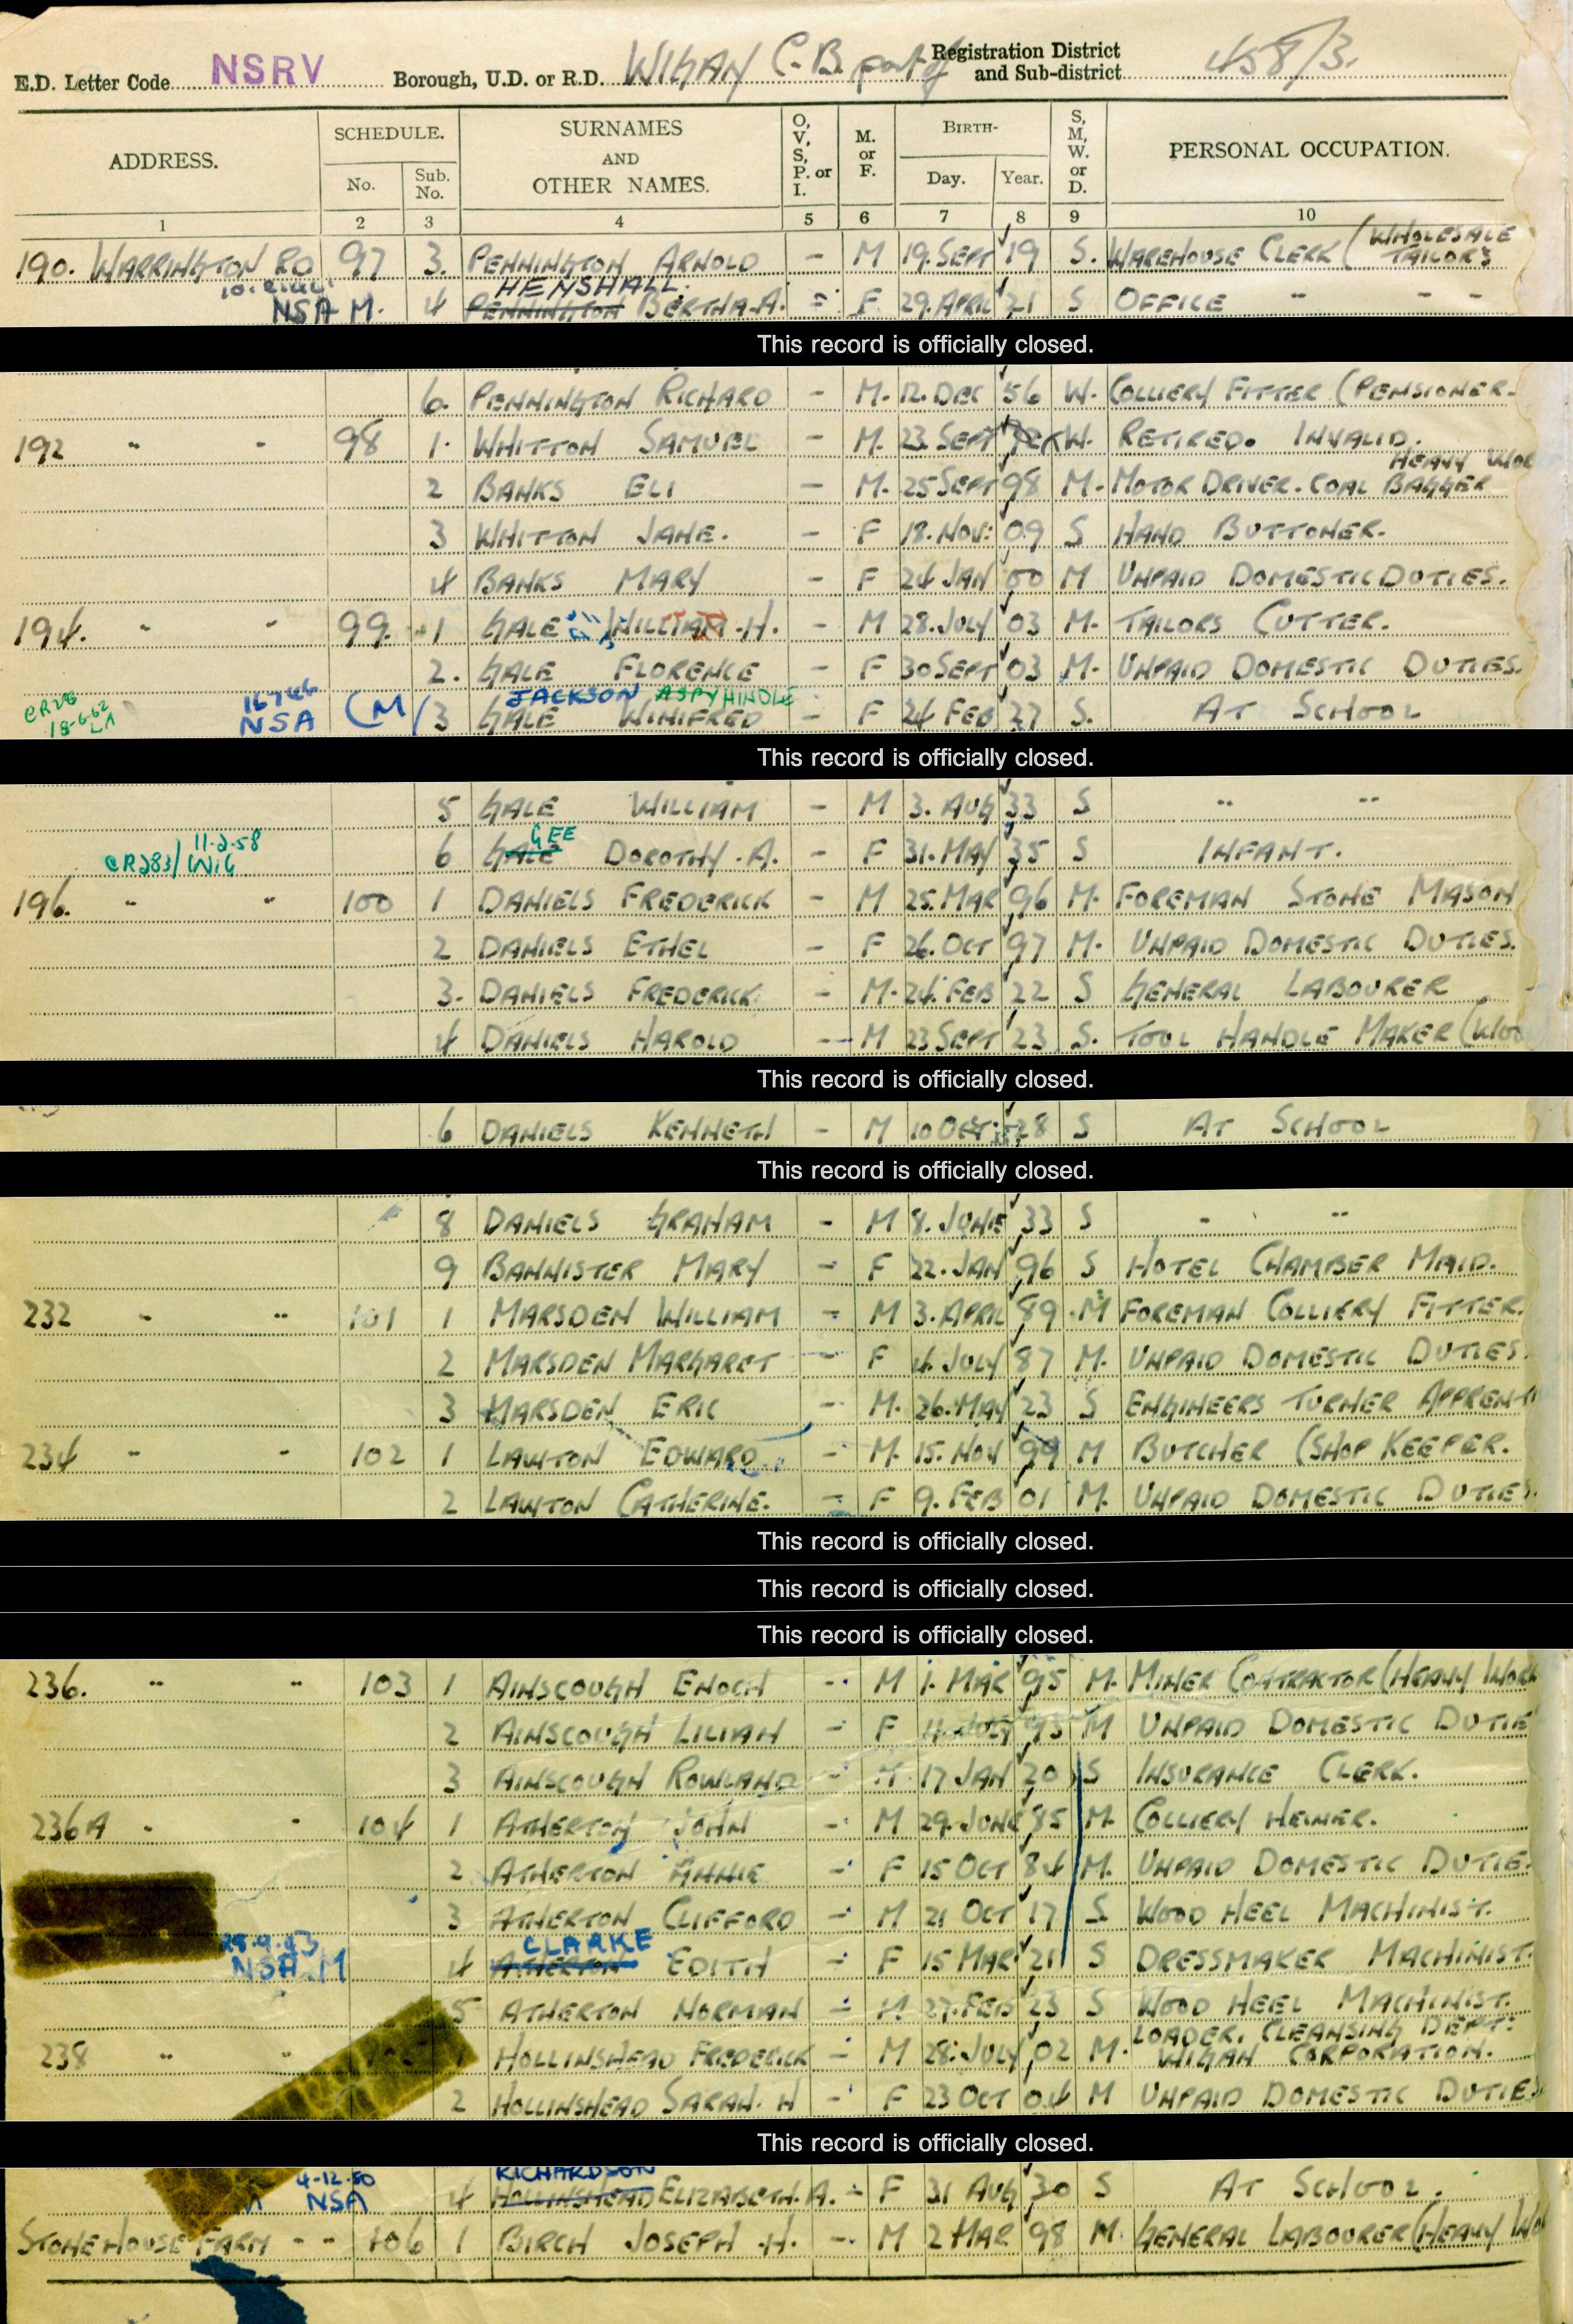 E.D. Letter Code NSRV Borough, U.D. or R.D. WIGAN C.B. part of Registration District and Sub-district 458/3.
ADDRESS. SCHEDULE. No. Sub. No. SURNAMES AND OTHER NAMES. O, V, S, P. or I. M. or F. BIRTH- Day. Year. S, M, W. or D. PERSONAL OCCUPATION.
1 2 3 4 5 6 7 8 9 10
190. WARRINGTON RD 97 3. PENNINGTON ARNOLD - M 19. SEPT 19 S. WAREHOUSE CLERK (WHOLESALE TAILORS
NSA M. 4 PENNINGTON HENSHALL. BERTHA.A. - F 29. APRIL 21 S OFFICE " - -
This record is officially closed.
6. PENNINGTON RICHARD - M. 12. DEC 56 W. COLLIERY FITTER (PENSIONER.
192 " " 98 1. WHITTON SAMUEL - M. 23. SEPT W. RETIRED. INVALID.
2 BANKS ELI - M. 25 SEPT 98 M. MOTOR DRIVER. COAL BAGGER HEAVY WOR
3 WHITTON JANE. - F 18. NOV: 09 S HAND BUTTONER.
4 BANKS MARY - F 24 JAN 00 M UNPAID DOMESTIC DUTIES.
194. " " 99. 1 GALE WILLIAM .H. - M 28. JULY 03 M. TAILORS CUTTER.
2. GALE FLORENCE - F 30 SEPT 03 M. UNPAID DOMESTIC DUTIES.
CR296 18-6-62 LA 16746 NSA (M/ 3 GALE JACKSON ASPYHINDLE WINIFRED - F 24 FEB 27 S. AT SCHOOL
This record is officially closed.
5 GALE WILLIAM - M 3. AUG 33 S " "
CR283/WIG 11-2-58 6 GALE GEE DOROTHY .A. - F 31. MAY 35 S INFANT.
196. " " 100 1 DANIELS FREDERICK - M 25. MAR 96 M. FOREMAN STONE MASON
2 DANIELS ETHEL - F 26. OCT 97 M. UNPAID DOMESTIC DUTIES.
3. DANIELS FREDERICK - M. 24. FEB 22 S GENERAL LABOURER
4 DANIELS HAROLD - M 23 SEPT 23 S. TOOL HANDLE MAKER (WOO
This record is officially closed.
6 DANIELS KENNETH - M 10 OCT: 28 S AT SCHOOL
This record is officially closed.
8 DANIELS GRAHAM - M 8. JUNE 33 S " "
9 BANNISTER MARY - F 22. JAN 96 S HOTEL CHAMBER MAID.
232 " " 101 1 MARSDEN WILLIAM - M 3. APRIL 89 M FOREMAN COLLIERY FITTER.
2 MARSDEN MARGARET - F 4. JULY 87 M. UNPAID DOMESTIC DUTIES.
3 MARSDEN ERIC - M. 26. MAY 23 S ENGINEERS TURNER APPRENTI
234 " " 102 1 LAWTON EDWARD - M. 15. NOV 99 M BUTCHER (SHOP KEEPER.
2 LAWTON CATHERINE. - F 9. FEB 01 M. UNPAID DOMESTIC DUTIES.
This record is officially closed.
This record is officially closed.
This record is officially closed.
236. " " 103 1 AINSCOUGH ENOCH - M 1. MAR 95 M. MINER CONTRACTOR (HEAVY WORK
2 AINSCOUGH LILIAN - F JULY 95 M UNPAID DOMESTIC DUTIE
3 AINSCOUGH ROWLAND - M 17 JAN 20 S INSURANCE CLERK.
236A " " 104 1 ATHERTON JOHN - M 29. JUNE 85 M. COLLIERY HEWER.
2 ATHERTON ANNIE - F 15 OCT 84 M. UNPAID DOMESTIC DUTIE.
3 ATHERTON CLIFFORD - M 21 OCT 17 S WOOD HEEL MACHINIST.
NSA.M 4 ATHERTON CLARKE EDITH - F 15 MAR 21 S DRESSMAKER MACHINIST.
5 ATHERTON NORMAN - M 27. FEB 23 S WOOD HEEL MACHINIST.
238 " " 1 HOLLINSHEAD FREDERICK - M 28. JULY 02 M. LOADER. CLEANSING DEPT: WIGAN CORPORATION.
2 HOLLINSHEAD SARAH. H - F 23 OCT 04 M UNPAID DOMESTIC DUTIES
This record is officially closed.
M 4-12-50 NSA 4 HOLLINSHEAD RICHARDSON ELIZABETH. A. - F 31 AUG 30 S AT SCHOOL.
STONEHOUSE FARM - - 106 1 BIRCH JOSEPH .H. - M 2 MAR 98 M. GENERAL LABOURER (HEAVY WO